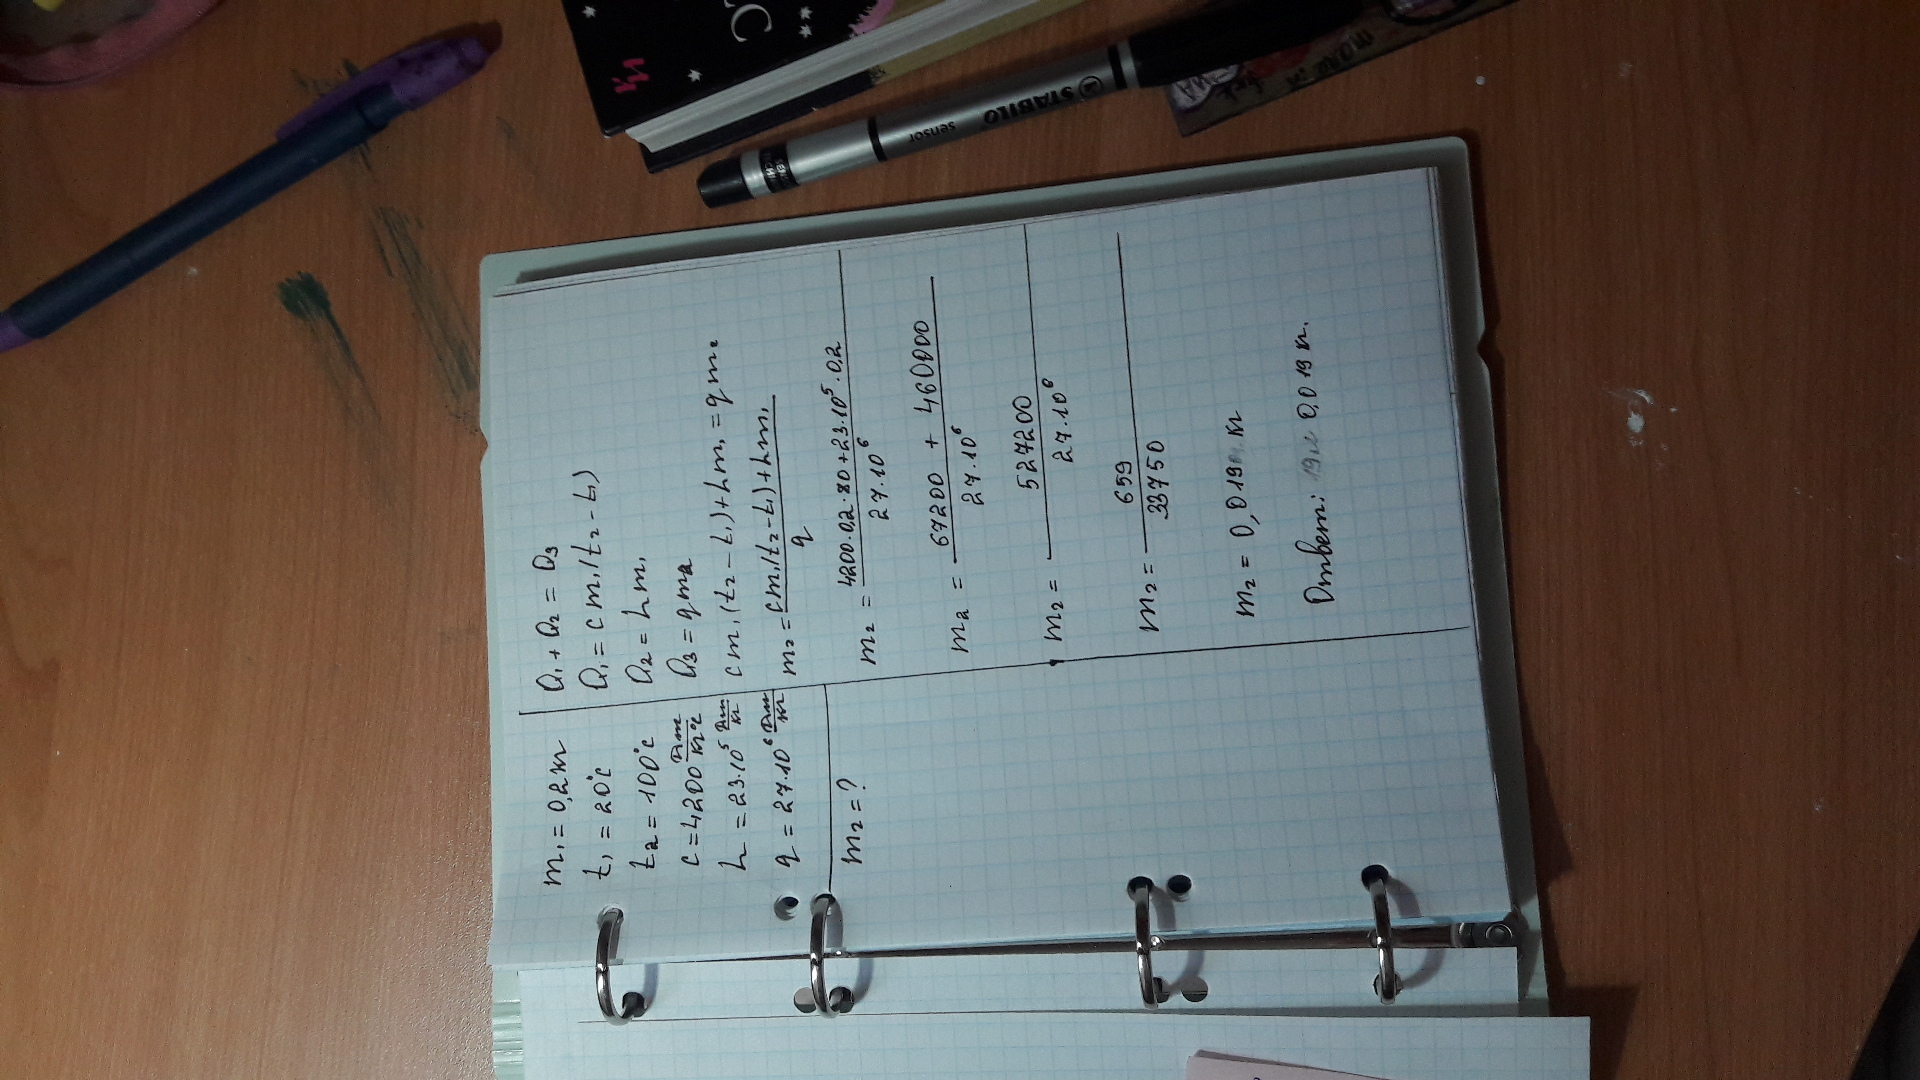 m₁ = 0,2кг
t₁ = 20°C
t₂ = 100°C
c = 4200 Дж/кг°C
L = 23·10⁵ Дж/кг
q = 27·10⁶ Дж/кг
m₂ = ?
Q₁ + Q₂ = Q₃
Q₁ = cm₁(t₂ - t₁)
Q₂ = Lm₁
Q₃ = qm₂
cm₁(t₂ - t₁) + Lm₁ = qm₂
m₂ = cm₁(t₂ - t₁) + Lm₁ / q
m₂ = 4200·0,2·80 + 23·10⁵·0,2 / 27·10⁶
m₂ = 67200 + 460000 / 27·10⁶
m₂ = 527200 / 27·10⁶
m₂ = 659 / 33750
m₂ = 0,019 кг
Ответ: 0,019 кг.
STABILO
sensor